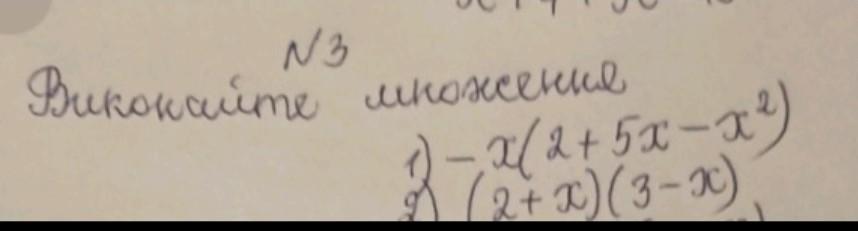 N3
Виконайте множення
1) - x(2 + 5x - x²)
2) (2 + x)(3 - x)